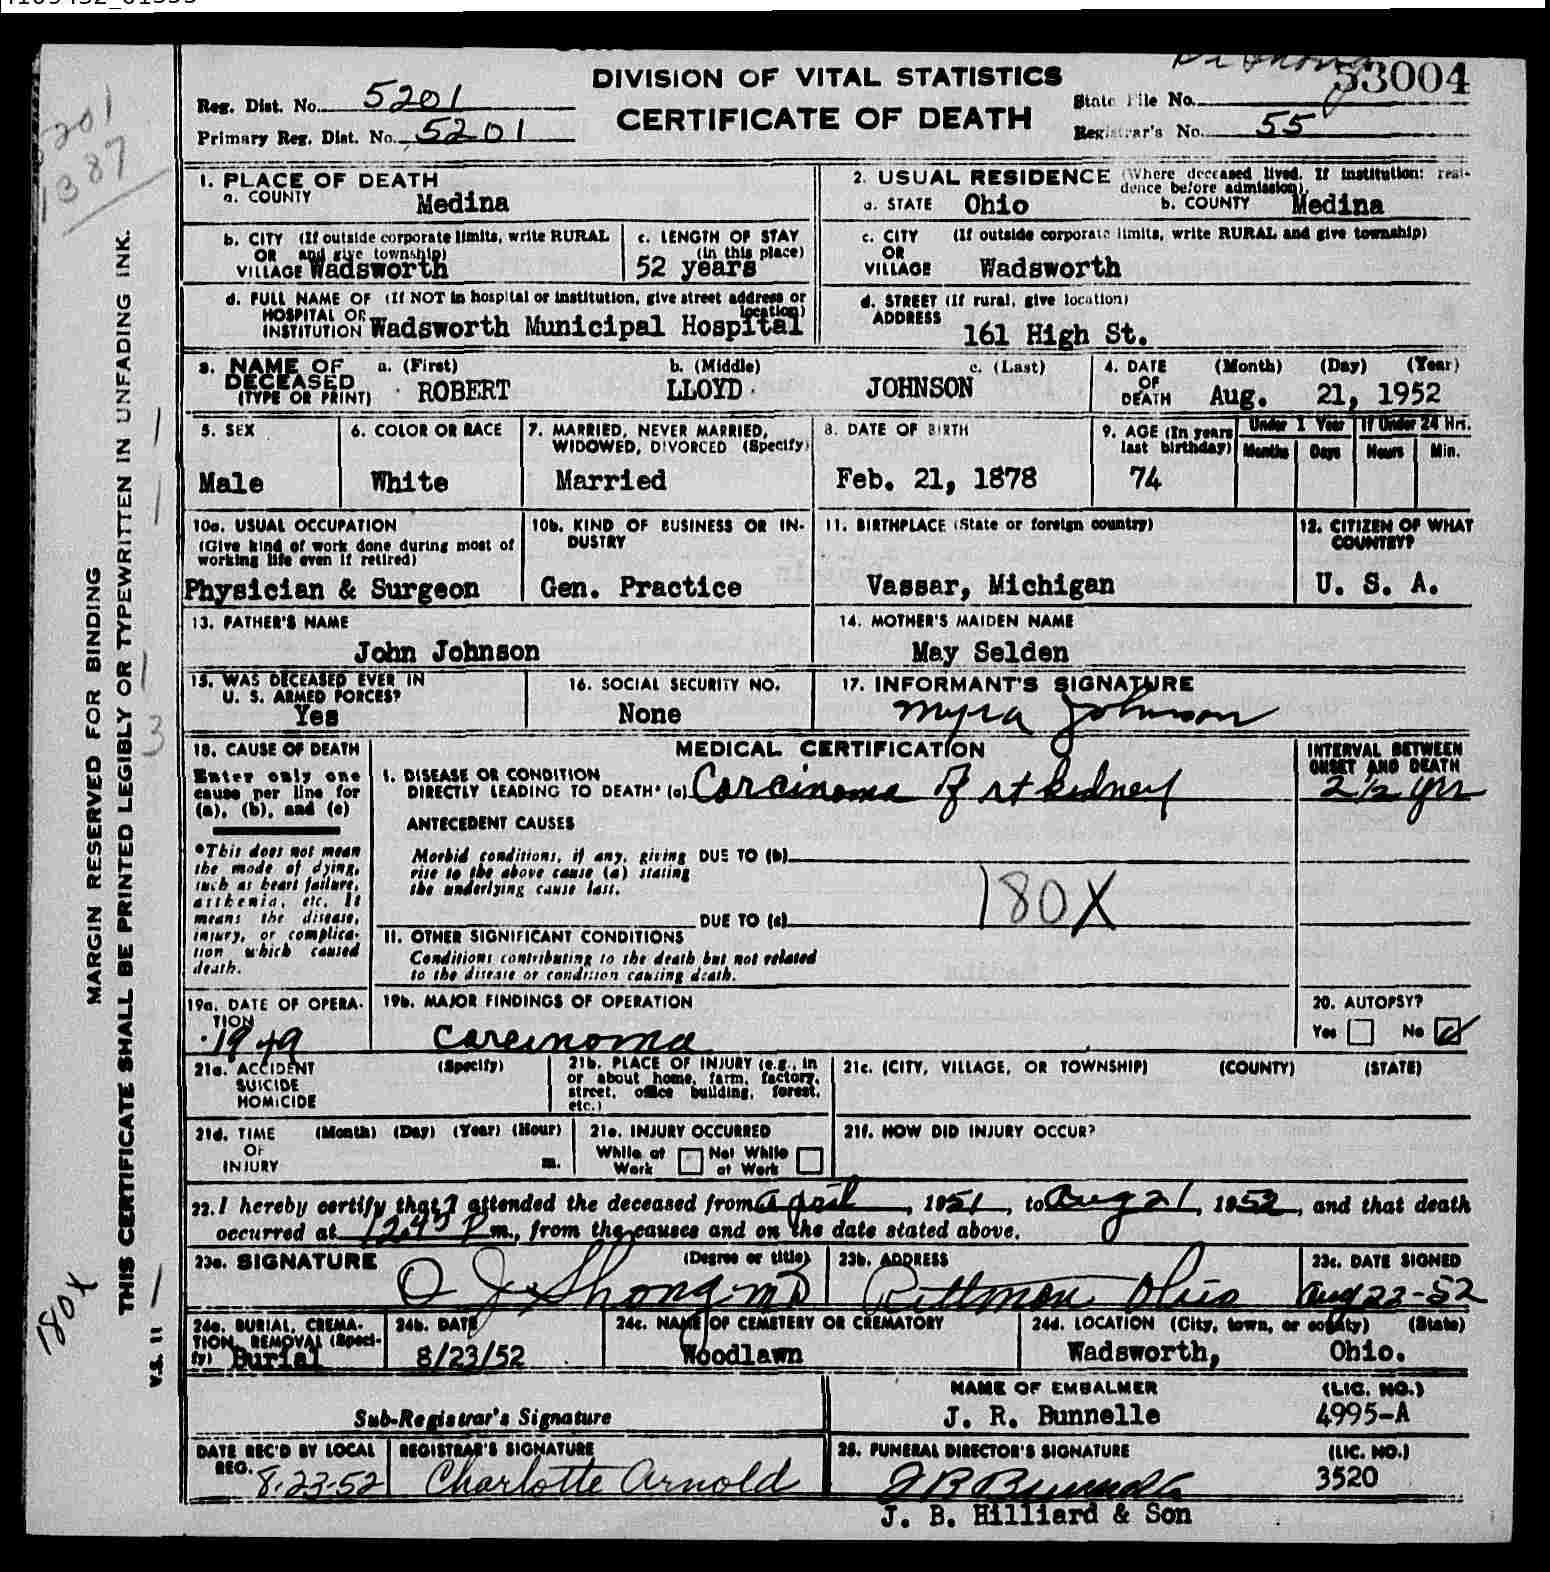 DIVISION OF VITAL STATISTICS
CERTIFICATE OF DEATH
Reg. Dist. No. 5201
Primary Reg. Dist. No. 5201
State File No. 53004
Registrar's No. 55
5201
1387
1. PLACE OF DEATH
a. COUNTY Medina
b. CITY (If outside corporate limits, write RURAL
OR and give township)
VILLAGE Wadsworth
c. LENGTH OF STAY
(in this place)
52 years
d. FULL NAME OF (If NOT in hospital or institution, give street address or
HOSPITAL OR location)
INSTITUTION Wadsworth Municipal Hospital
2. USUAL RESIDENCE (Where deceased lived. If institution: resi-
dence before admission).
a. STATE Ohio b. COUNTY Medina
c. CITY (If outside corporate limits, write RURAL and give township)
OR
VILLAGE Wadsworth
d. STREET (If rural, give location)
ADDRESS
161 High St.
3. NAME OF DECEASED (TYPE OR PRINT) a. (First) b. (Middle) c. (Last)
ROBERT LLOYD JOHNSON
4. DATE OF DEATH (Month) (Day) (Year)
Aug. 21, 1952
5. SEX
Male
6. COLOR OR RACE
White
7. MARRIED, NEVER MARRIED,
WIDOWED, DIVORCED (Specify)
Married
8. DATE OF BIRTH
Feb. 21, 1878
9. AGE (In years
last birthday)
74
Under 1 Year
Months Days
If Under 24 Hrs.
Hours Min.
10a. USUAL OCCUPATION
(Give kind of work done during most of
working life even if retired)
Physician & Surgeon
10b. KIND OF BUSINESS OR IN-
DUSTRY
Gen. Practice
11. BIRTHPLACE (State or foreign country)
Vassar, Michigan
12. CITIZEN OF WHAT
COUNTRY?
U. S. A.
13. FATHER'S NAME
John Johnson
14. MOTHER'S MAIDEN NAME
May Selden
15. WAS DECEASED EVER IN
U. S. ARMED FORCES?
Yes
16. SOCIAL SECURITY NO.
None
17. INFORMANT'S SIGNATURE
Myra Johnson
18. CAUSE OF DEATH
Enter only one
cause per line for
(a), (b), and (c)
*This does not mean
the mode of dying,
such as heart failure,
asthenia, etc. It
means the disease,
injury, or complica-
tion which caused
death.
MEDICAL CERTIFICATION
I. DISEASE OR CONDITION
DIRECTLY LEADING TO DEATH* (a) Carcinoma of rt kidney
INTERVAL BETWEEN
ONSET AND DEATH
2 1/2 yrs
ANTECEDENT CAUSES
Morbid conditions, if any, giving DUE TO (b)
rise to the above cause (a) stating
the underlying cause last.
DUE TO (c)
180X
II. OTHER SIGNIFICANT CONDITIONS
Conditions contributing to the death but not related
to the disease or condition causing death.
19a. DATE OF OPERA-
TION
1949
19b. MAJOR FINDINGS OF OPERATION
Carcinoma
20. AUTOPSY?
Yes No
21a. ACCIDENT (Specify)
SUICIDE
HOMICIDE
21b. PLACE OF INJURY (e.g., in
or about home, farm, factory,
street, office building, forest,
etc.)
21c. (CITY, VILLAGE, OR TOWNSHIP) (COUNTY) (STATE)
21d. TIME (Month) (Day) (Year) (Hour)
OF
INJURY m.
21e. INJURY OCCURRED
While at Work Not While at Work
21f. HOW DID INJURY OCCUR?
22. I hereby certify that I attended the deceased from April, 1951, to Aug 21, 1952, and that death
occurred at 12:45 P m., from the causes and on the date stated above.
23a. SIGNATURE (Degree or title)
23b. ADDRESS
Rittman Ohio
23c. DATE SIGNED
Aug 23-52
24a. BURIAL, CREMA-
TION, REMOVAL (Speci-
fy) Burial
24b. DATE
8/23/52
24c. NAME OF CEMETERY OR CREMATORY
Woodlawn
24d. LOCATION (City, town, or county) (State)
Wadsworth, Ohio.
Sub-Registrar's Signature
NAME OF EMBALMER (LIC. NO.)
J. R. Bunnelle 4995-A
DATE REC'D BY LOCAL
REG. 8-23-52
REGISTRAR'S SIGNATURE
Charlotte Arnold
25. FUNERAL DIRECTOR'S SIGNATURE (LIC. NO.)
3520
J. B. Hilliard & Son
MARGIN RESERVED FOR BINDING
THIS CERTIFICATE SHALL BE PRINTED LEGIBLY OR TYPEWRITTEN IN UNFADING INK.
V.S. 11
180X
3